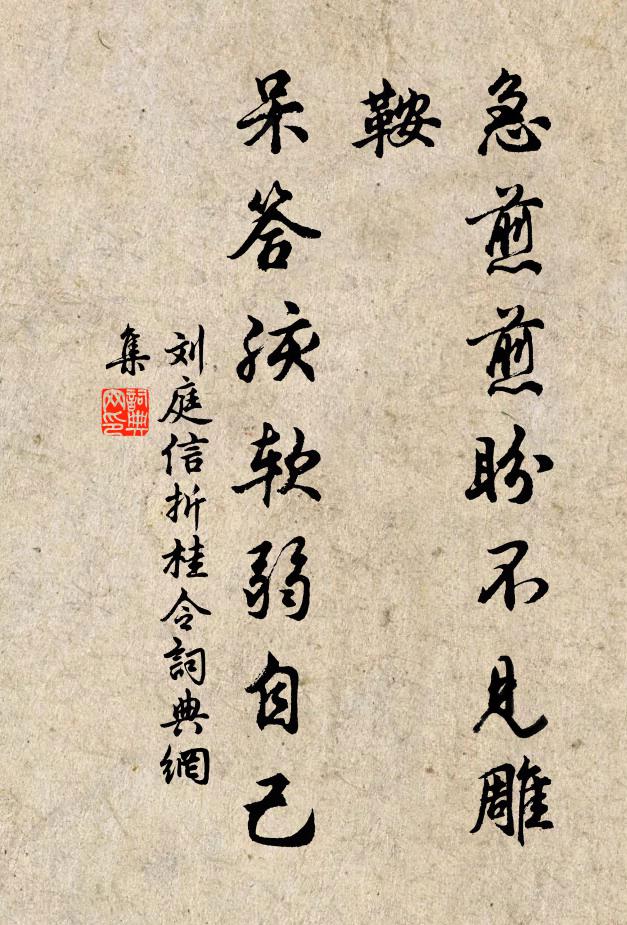 急煎煎盼不见雕
鞍
呆答孩软弱自己
刘庭信折桂令詞典網
集
詞典
网印